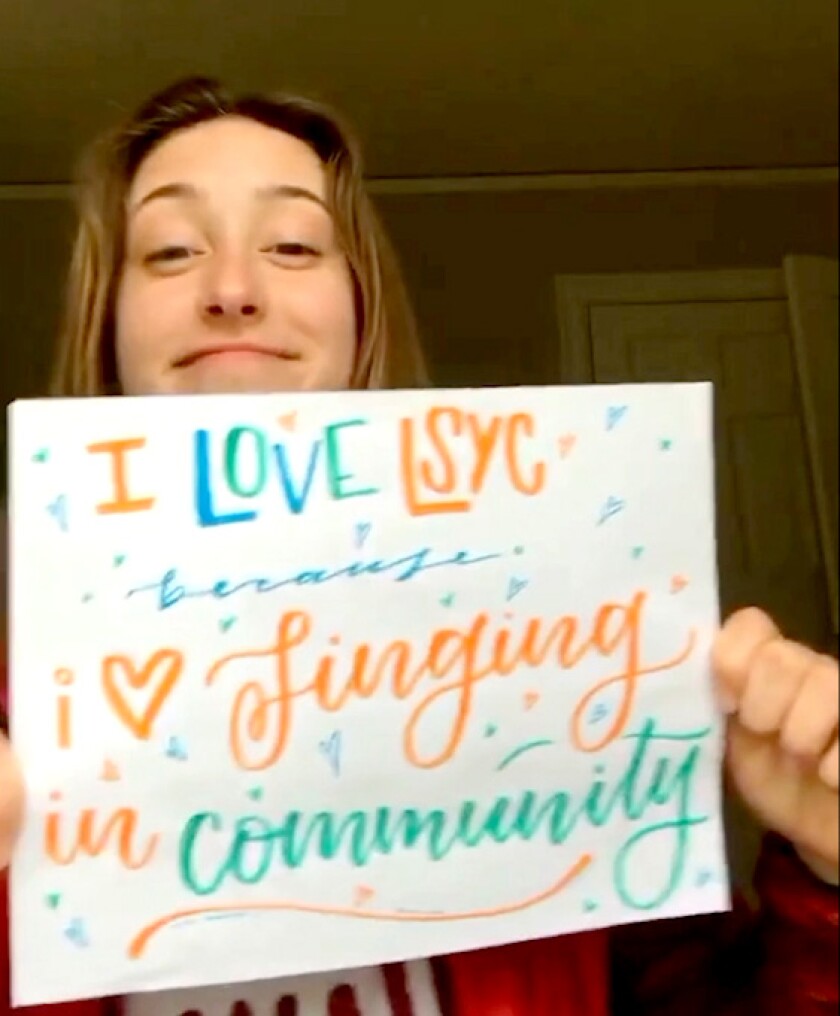 I LOVE LSYC
because
i ♡ Singing
in community